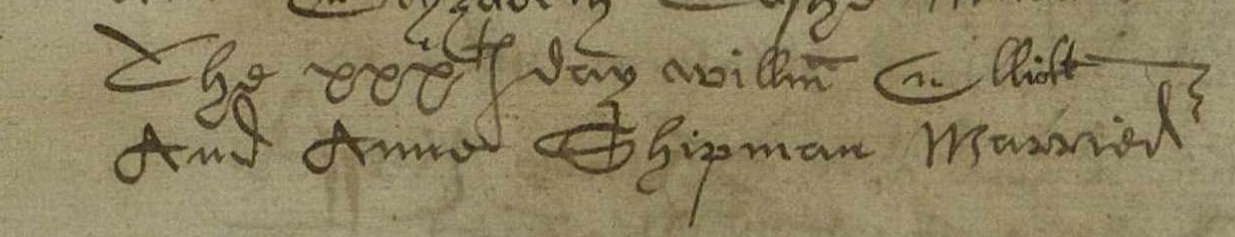 Elyzabeth
The xxxth day Willm Elliott
And Anne Shipman Married